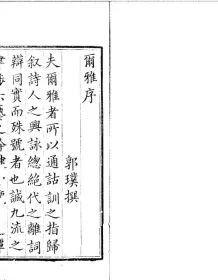 爾雅序
郭璞撰
夫爾雅者所以通詁訓之指歸
叙詩人之興詠總絶代之離詞
辯同實而殊號者也誠九流之